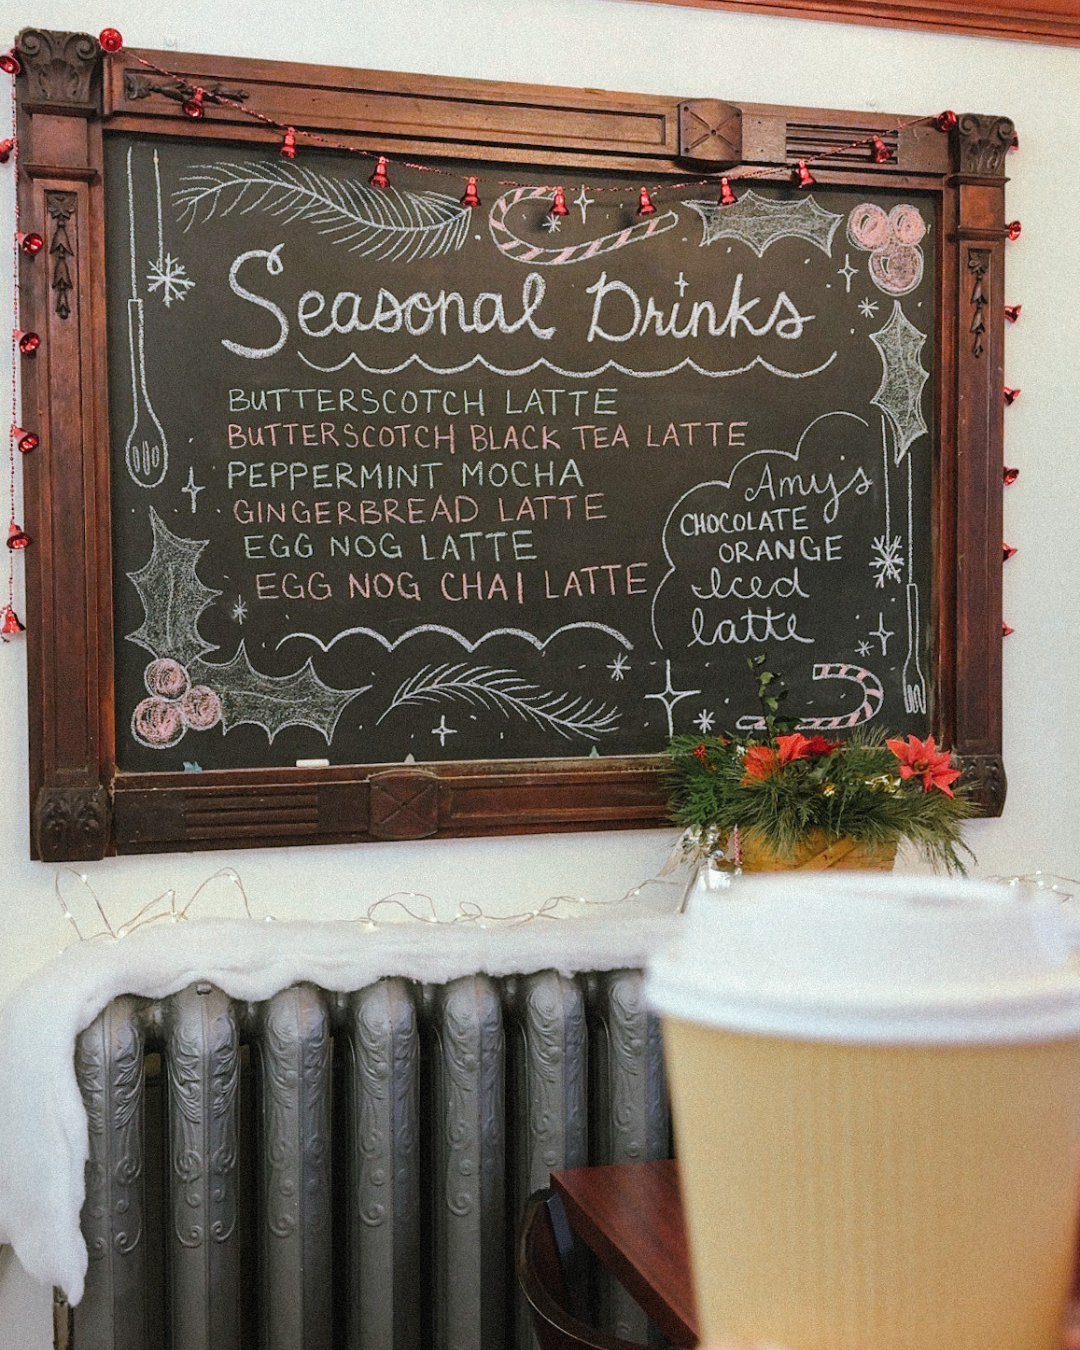 Seasonal Drinks
BUTTERSCOTCH LATTE
BUTTERSCOTCH BLACK TEA LATTE
PEPPERMINT MOCHA
GINGERBREAD LATTE
EGG NOG LATTE
EGG NOG CHAI LATTE
Amy's
CHOCOLATE
ORANGE
Iced
latte